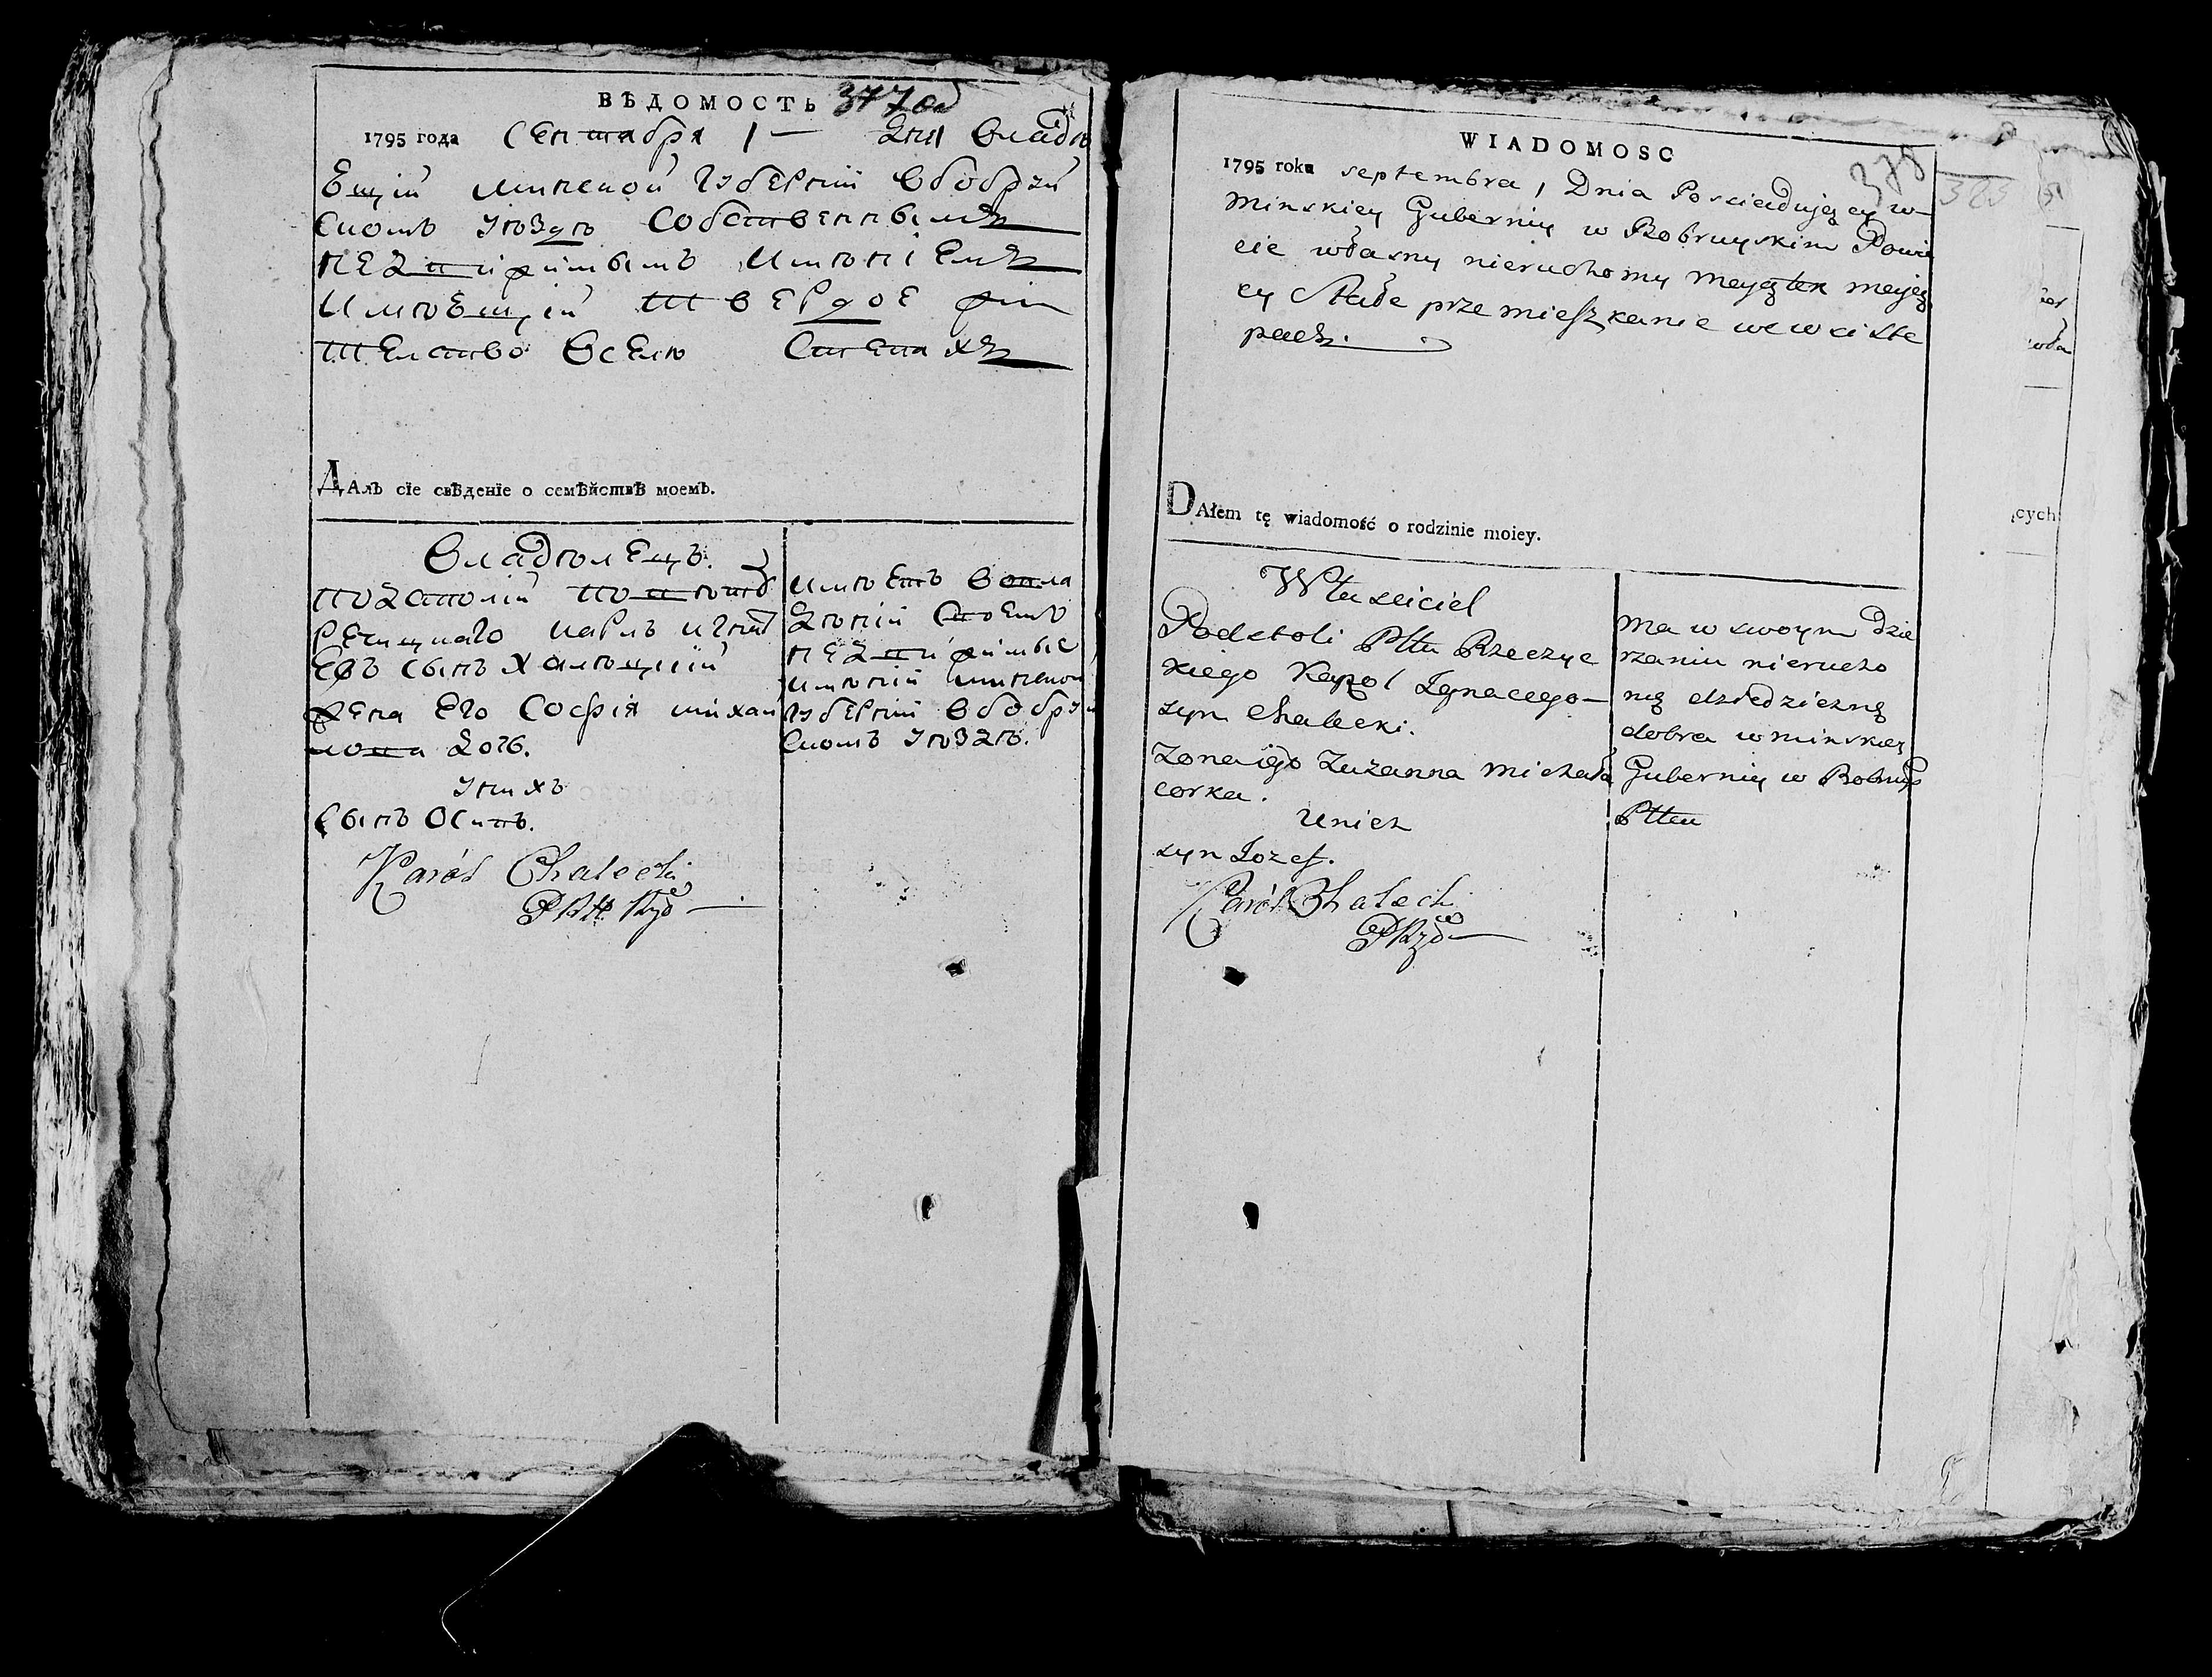 ВѢДОМОСТЬ 377 об
1795 года Сентабря 1 — Дня владѣ
Ещій минской Губерній вбобруй
скомъ уѣздѣ Собственнымъ
недвижимымъ имѣніемъ
имѣющій твердое жи
тельство всемѣ Стенахъ
ДАлъ сїе свѣденїе о семѣйствѣ моемъ.
владѣлецъ.
подстолій повѣту
Речицкаго карлъ игнат
Евъ сынъ халѣцкій
жена Его Софія михаи
лова дочь.
уних
Сынъ Осипъ.
Karól Chalecki
имѣетъ вовла
дѣній своемъ
недвижимые
имѣній минской
губерній вбобруй
скомъ уѣздѣ.
WIADOMOSC
378
323
1795 roku septembra 1 Dnia Posciadujący w
Minskiey Guberniy w Bobruyskim Powie
cie własny nieruchomy mayątek mający
cy Stałe przemieszkanie we wsi Ste
pach.
DAłem tę wiadomość o rodzinie moiey.
Własciciel
Podstoli Pttu Rzeczyc
kiego Karol Ignacego
syn Chalecki.
Zona iego Zuzanna Michała
corka.
Unich
syn Iozef.
Karól Chalecki
Ma w swoym dzie
rzaniu nierucho
mą dziedziczną
dobra w minskiey
Guberniy w Bobruys
Pttu
cych